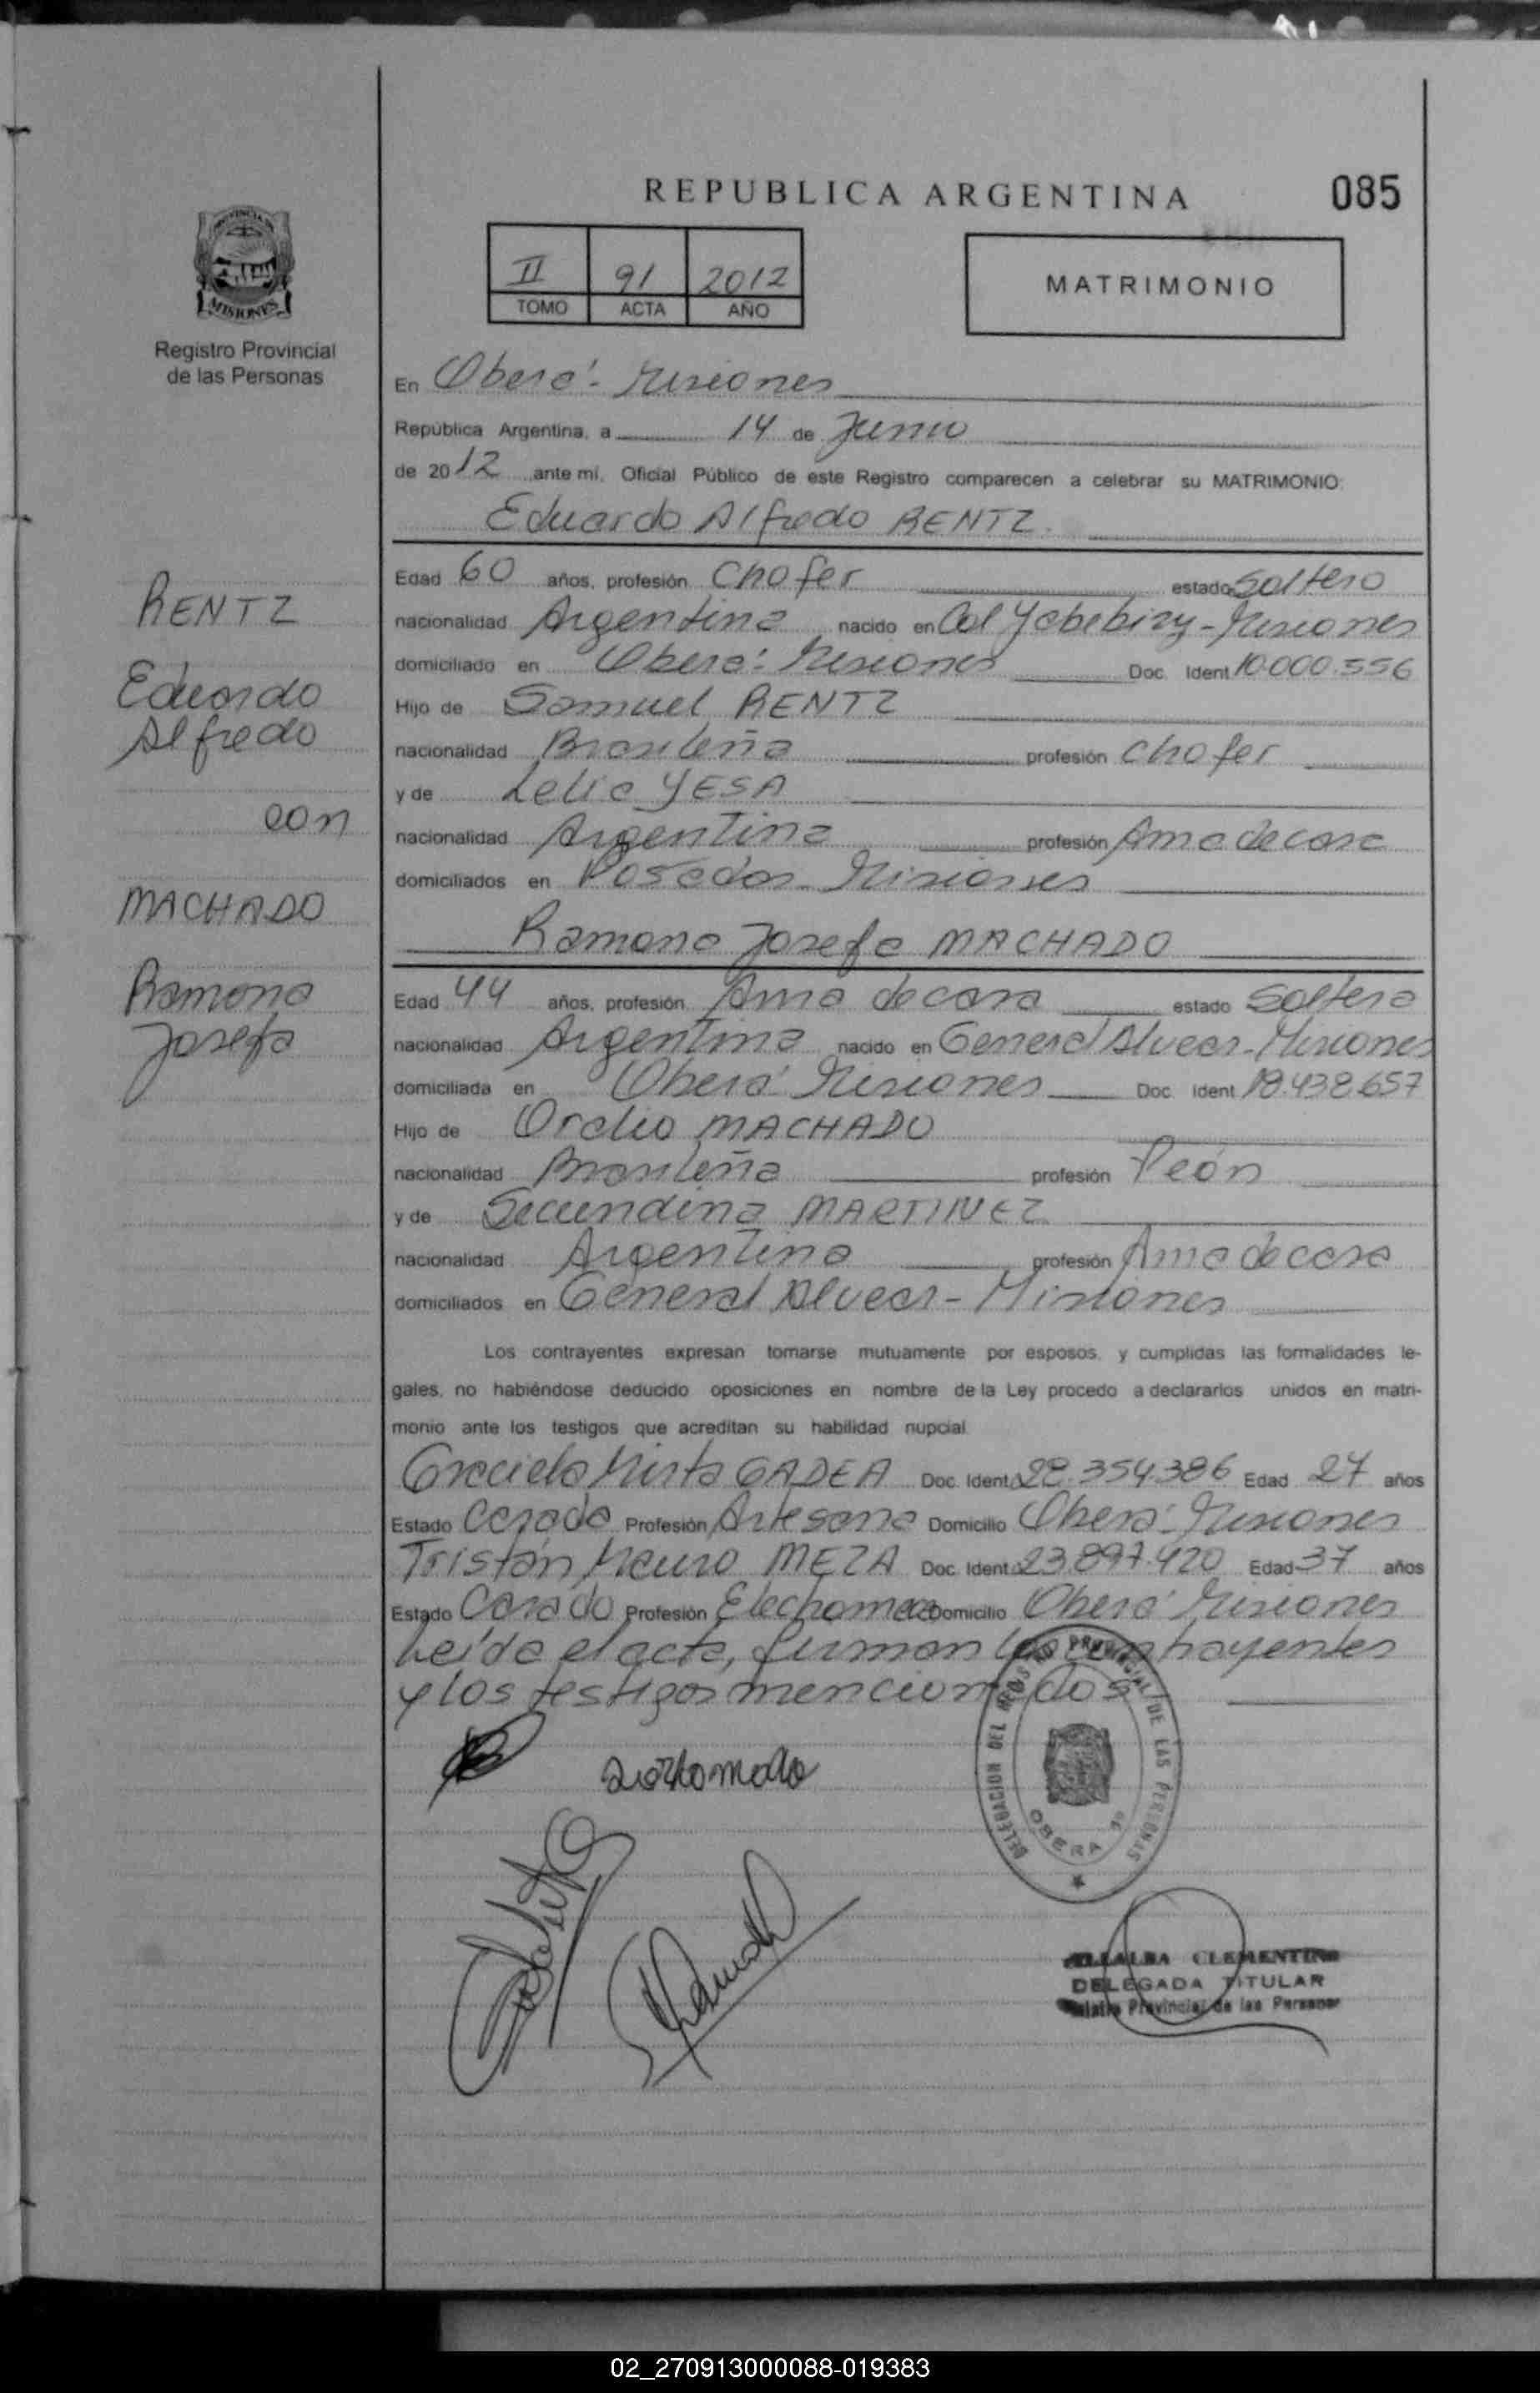 REPUBLICA ARGENTINA
085
PROVINCIA DE
MISIONES
Registro Provincial
de las Personas
II 91 2012
TOMO ACTA AÑO
MATRIMONIO
En Oberá - Misiones
República Argentina, a 14 de Junio
de 2012 ante mi, Oficial Público de este Registro comparecen a celebrar su MATRIMONIO:
Eduardo Alfredo RENTZ
RENTZ
Eduardo
Alfredo
con
MACHADO
Ramona
Josefa
Edad 60 años, profesión Chofer estado Soltero
nacionalidad Argentina nacido en Col Yabebiry - Misiones
domiciliado en Oberá - Misiones Doc. Ident 10.000.556
Hijo de Samuel RENTZ
nacionalidad Brasileña profesión Chofer
y de Lelia YESA
nacionalidad Argentina profesión Ama de casa
domiciliados en Posadas - Misiones
Ramona Josefa MACHADO
Edad 44 años, profesión Ama de casa estado Soltera
nacionalidad Argentina nacido en General Alvear - Misiones
domiciliada en Oberá Misiones Doc. Ident 18.438.657
Hijo de Oralio MACHADO
nacionalidad Brasileña profesión Peón
y de Secundina MARTINEZ
nacionalidad Argentina profesión Ama de casa
domiciliados en General Alvear - Misiones
Los contrayentes expresan tomarse mutuamente por esposos, y cumplidas las formalidades le-
gales, no habiéndose deducido oposiciones en nombre de la Ley procedo a declararlos unidos en matri-
monio ante los testigos que acreditan su habilidad nupcial
Graciela Mirta GADEA Doc. Ident. 28.354.386 Edad 27 años
Estado Casada Profesión Artesana Domicilio Oberá - Misiones
Tristán Mauro MEZA Doc. Ident. 23.897.420 Edad 37 años
Estado Casado Profesión Domicilio Oberá Misiones
Leída el acta, firman los contrayentes
y los testigos mencionados
DELEGACION DEL REGISTRO PROVINCIAL DE LAS PERSONAS
OBERA
CLEMENTINA
DELEGADA TITULAR
Provincial de las Personas
02_270913000088-019383